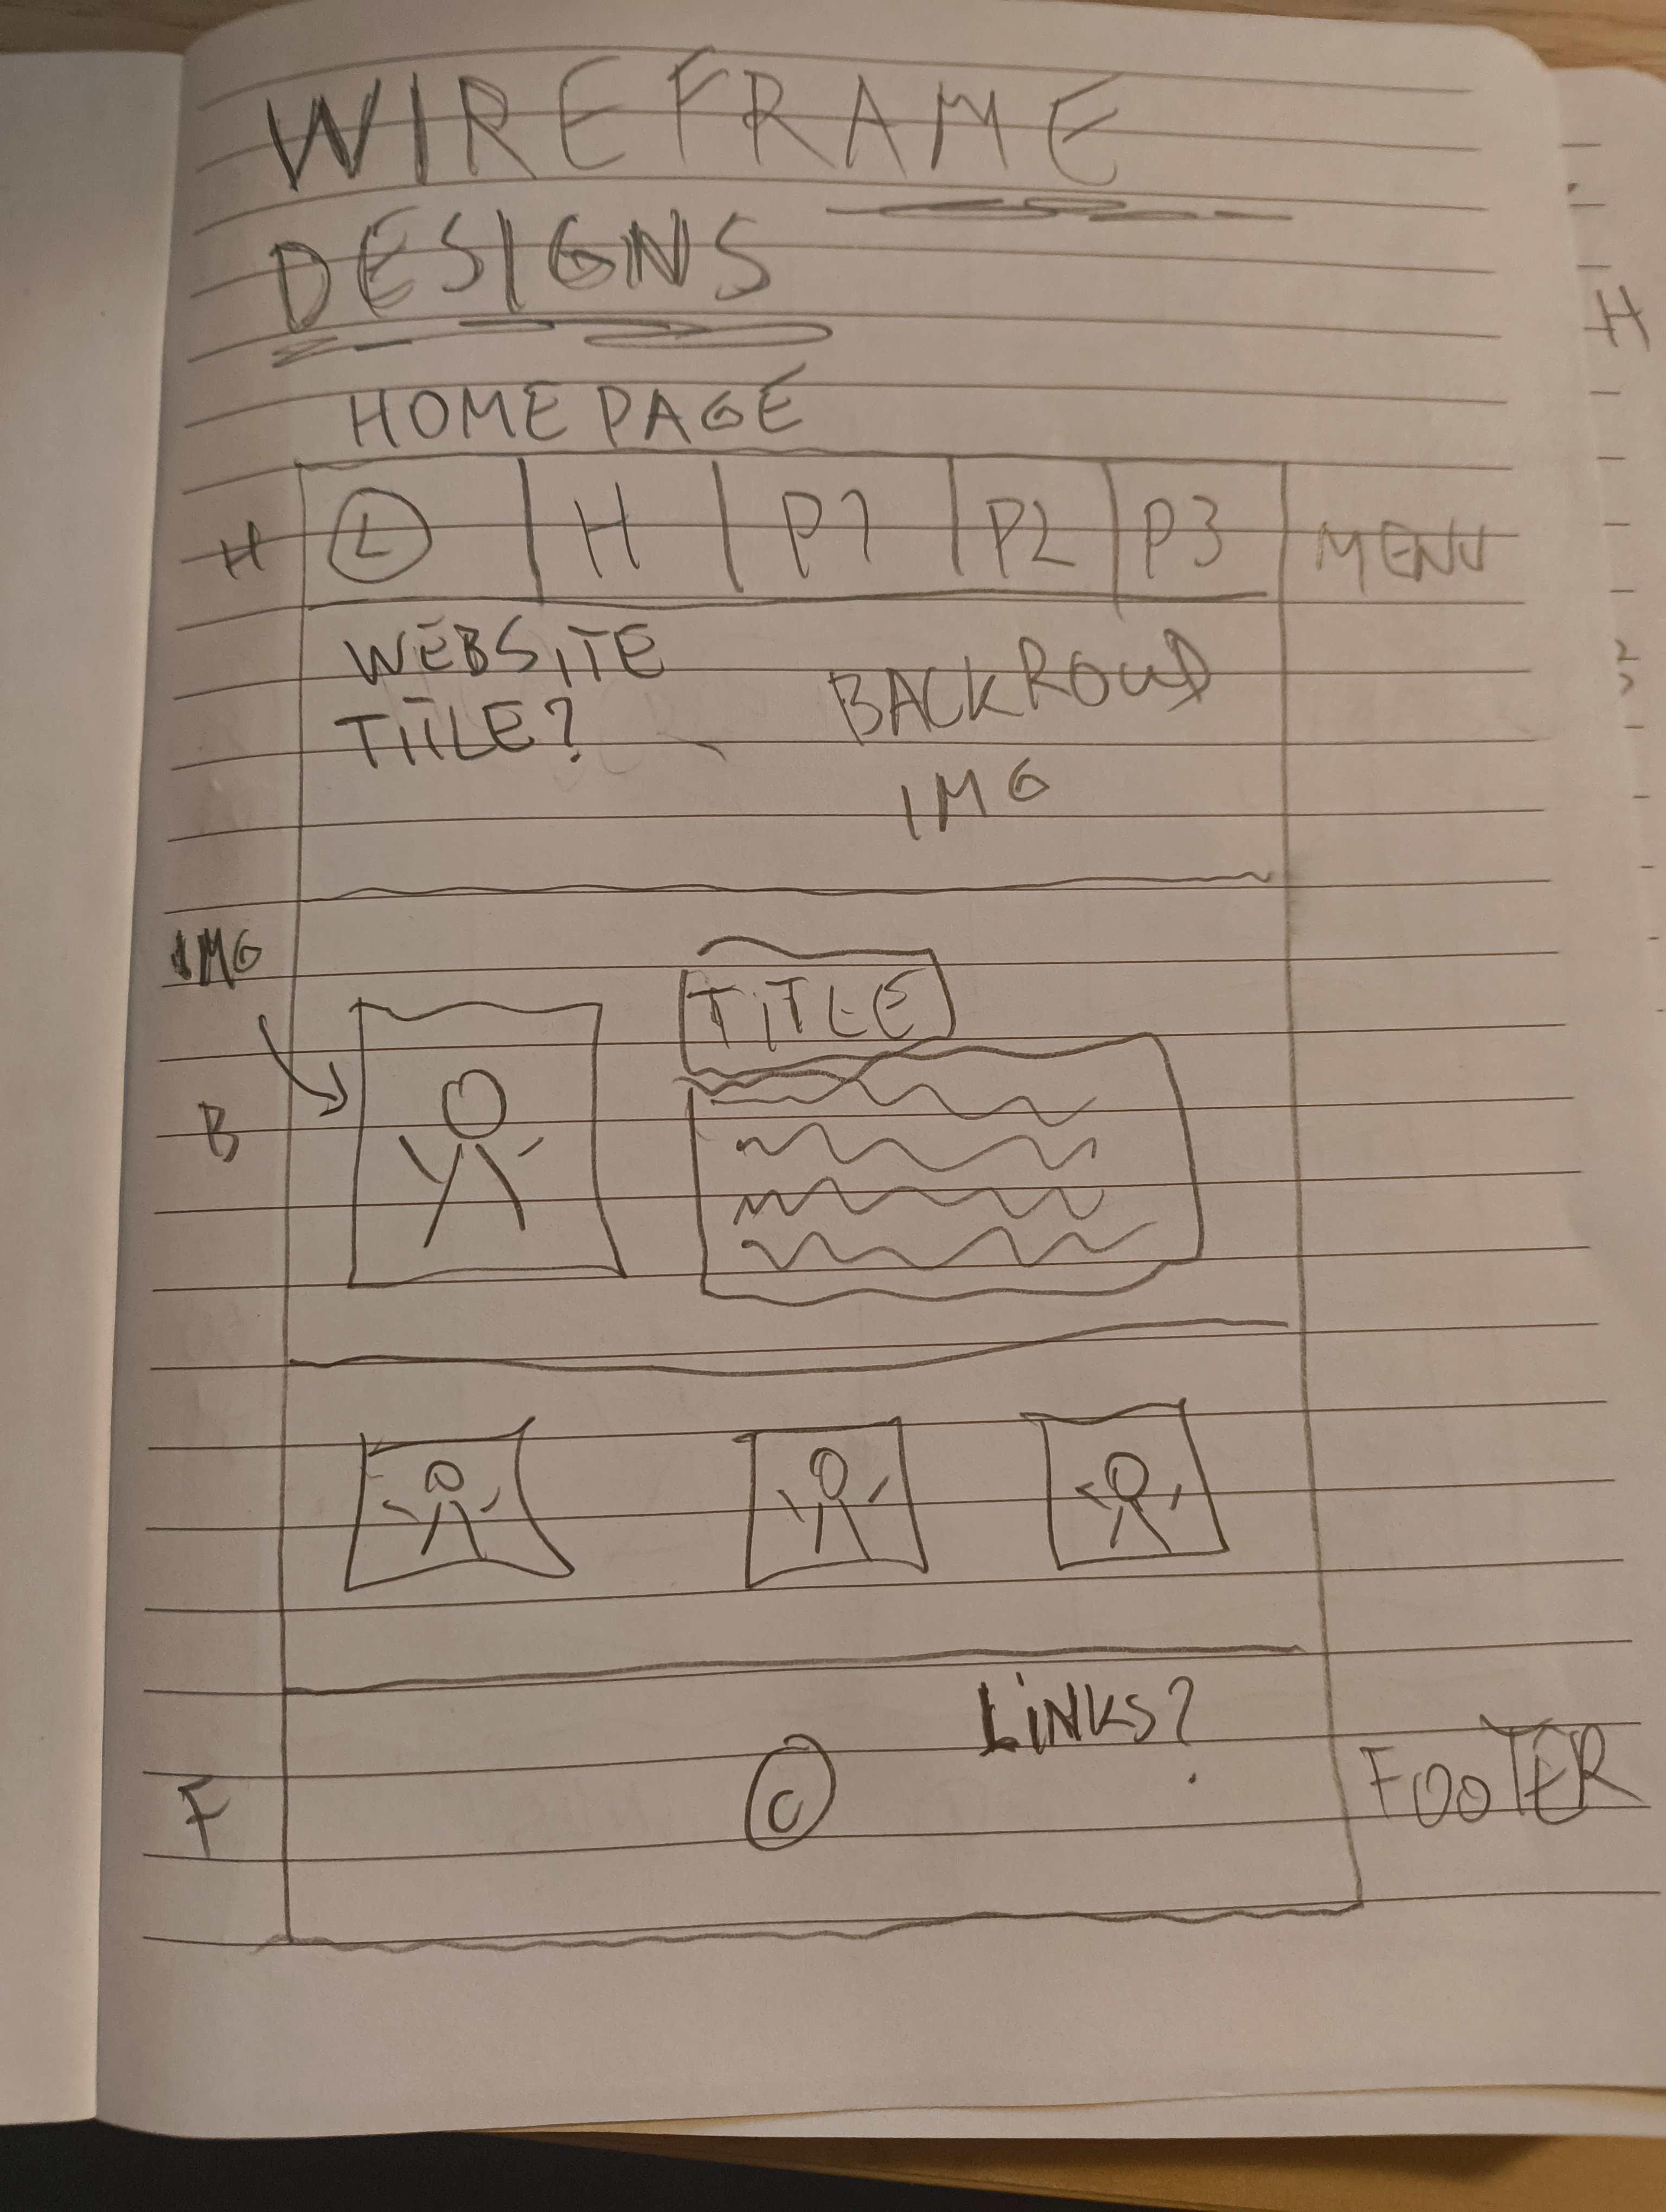 WIREFRAME
DESIGNS
HOMEPAGE
H L H P1 P2 P3 MENU
WEBSITE
TITLE?
BACKROUD
IMG
IMG
TITLE
B
LINKS?
F C FOOTER
H